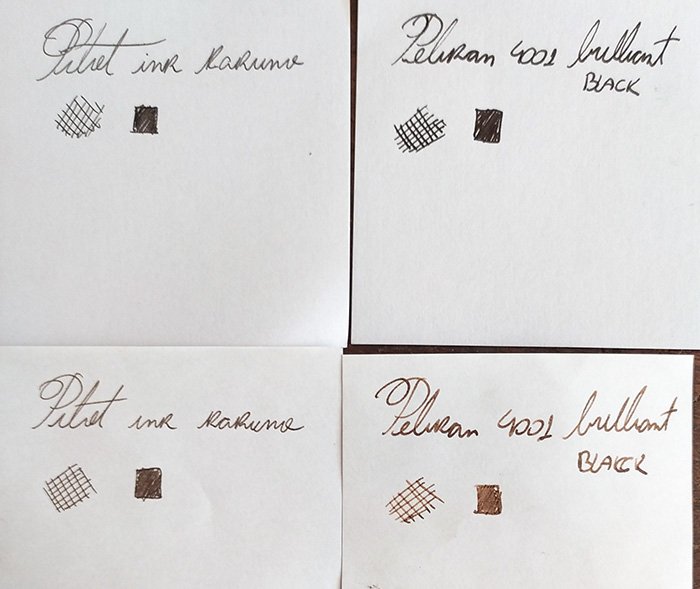 Pilot ink Kakuno
Pelikan 4001 brilliant
BLACK
Pilot ink Kakuno
Pelikan 4001 brilliant
BLACK